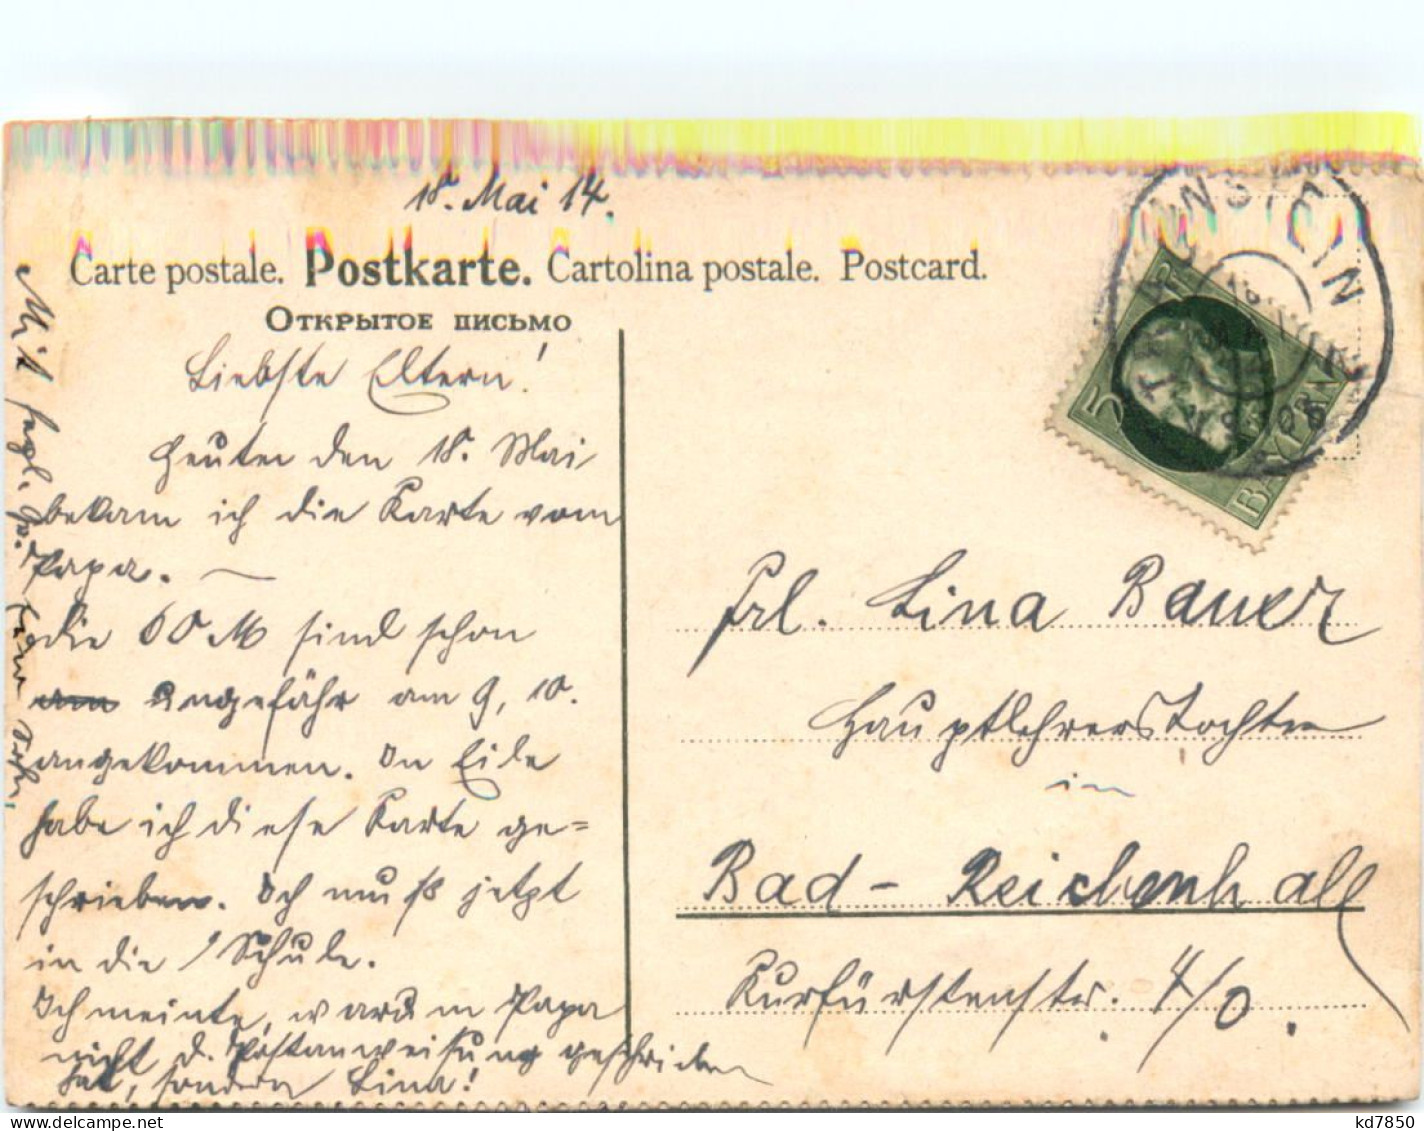 18. Mai 14.
Carte postale. Postkarte. Cartolina postale. Postcard.
Открытое письмо
Liebste Eltern!
Heute den 18. Mai
bekam ich die Karte vom
Papa. —
die 60 M sind schon
ungefähr am 9, 10.
angekommen. In Eile
habe ich diese Karte ge=
schrieben. Ich muß jetzt
in die Schule.
Ich meinte, warum Papa
nicht d. Postanweisung geschrieben
hat, sondern Lina!
Mit herzl. Gr.
Euer Sohn
WUNSIEDEL
5
BAYERN
Frl. Lina Bauer
Hauptlehrerstochter
in
Bad-Reichenhall
Kurfürstenstr. 4/0.
kd7850